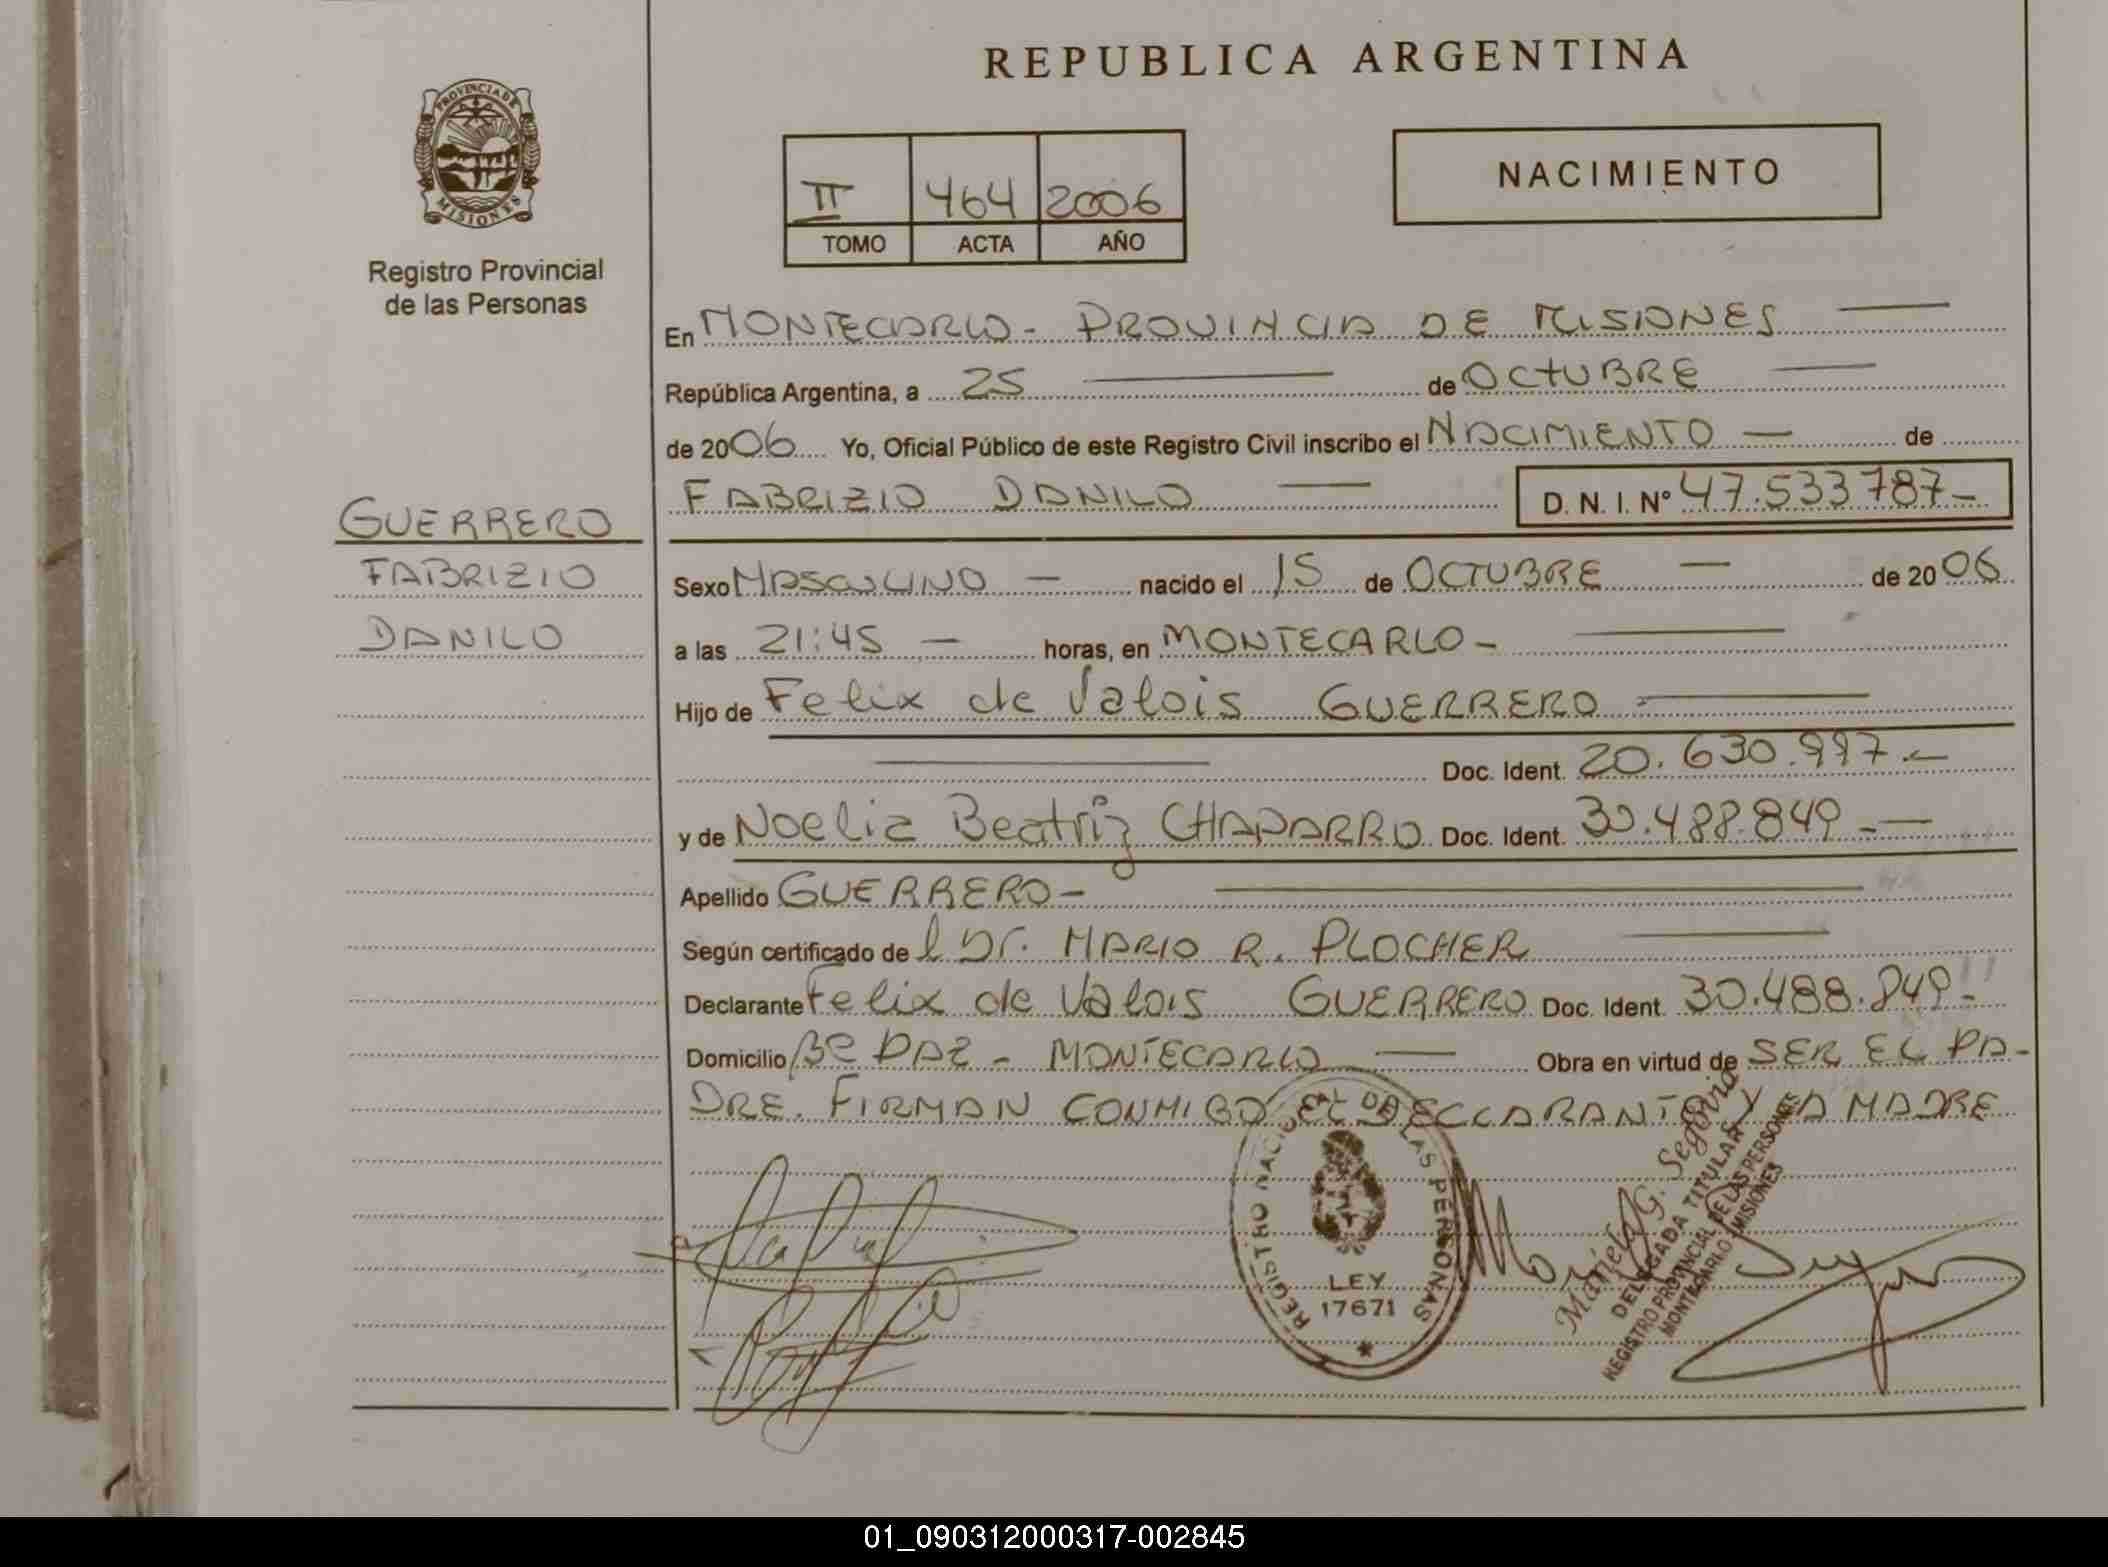 REPUBLICA ARGENTINA
PROVINCIA DE
MISIONES
Registro Provincial
de las Personas
II 464 2006
TOMO ACTA AÑO
NACIMIENTO
En MONTECARLO - PROVINCIA DE MISIONES
República Argentina, a 25 de OCTUBRE
de 2006 Yo, Oficial Público de este Registro Civil inscribo el NACIMIENTO — de
FABRIZIO DANILO — D. N. I. Nº 47.533787-
GUERRERO
FABRIZIO
DANILO
Sexo MASCULINO — nacido el 15 de OCTUBRE — de 2006
a las 21:45 — horas, en MONTECARLO -
Hijo de Felix de Valois GUERRERO
Doc. Ident. 20.630.997.-
y de Noelia Beatriz CHAPARRO Doc. Ident. 30.488.849 -
Apellido GUERRERO -
Según certificado de l Dr. MARIO R. PLOCHER
Declarante Felix de Valois GUERRERO Doc. Ident. 30.488.849-
Domicilio Bº PAZ - MONTECARLO — Obra en virtud de SER EL PA-
DRE. FIRMAN CONMIGO EL DECLARANTE Y LA MADRE
REGISTRO NACIONAL DE LAS PERSONAS
LEY
17671
Mariela G. Segovia
DELEGADA TITULAR
REGISTRO PROVINCIAL DE LAS PERSONAS
MONTECARLO - MISIONES
01_090312000317-002845